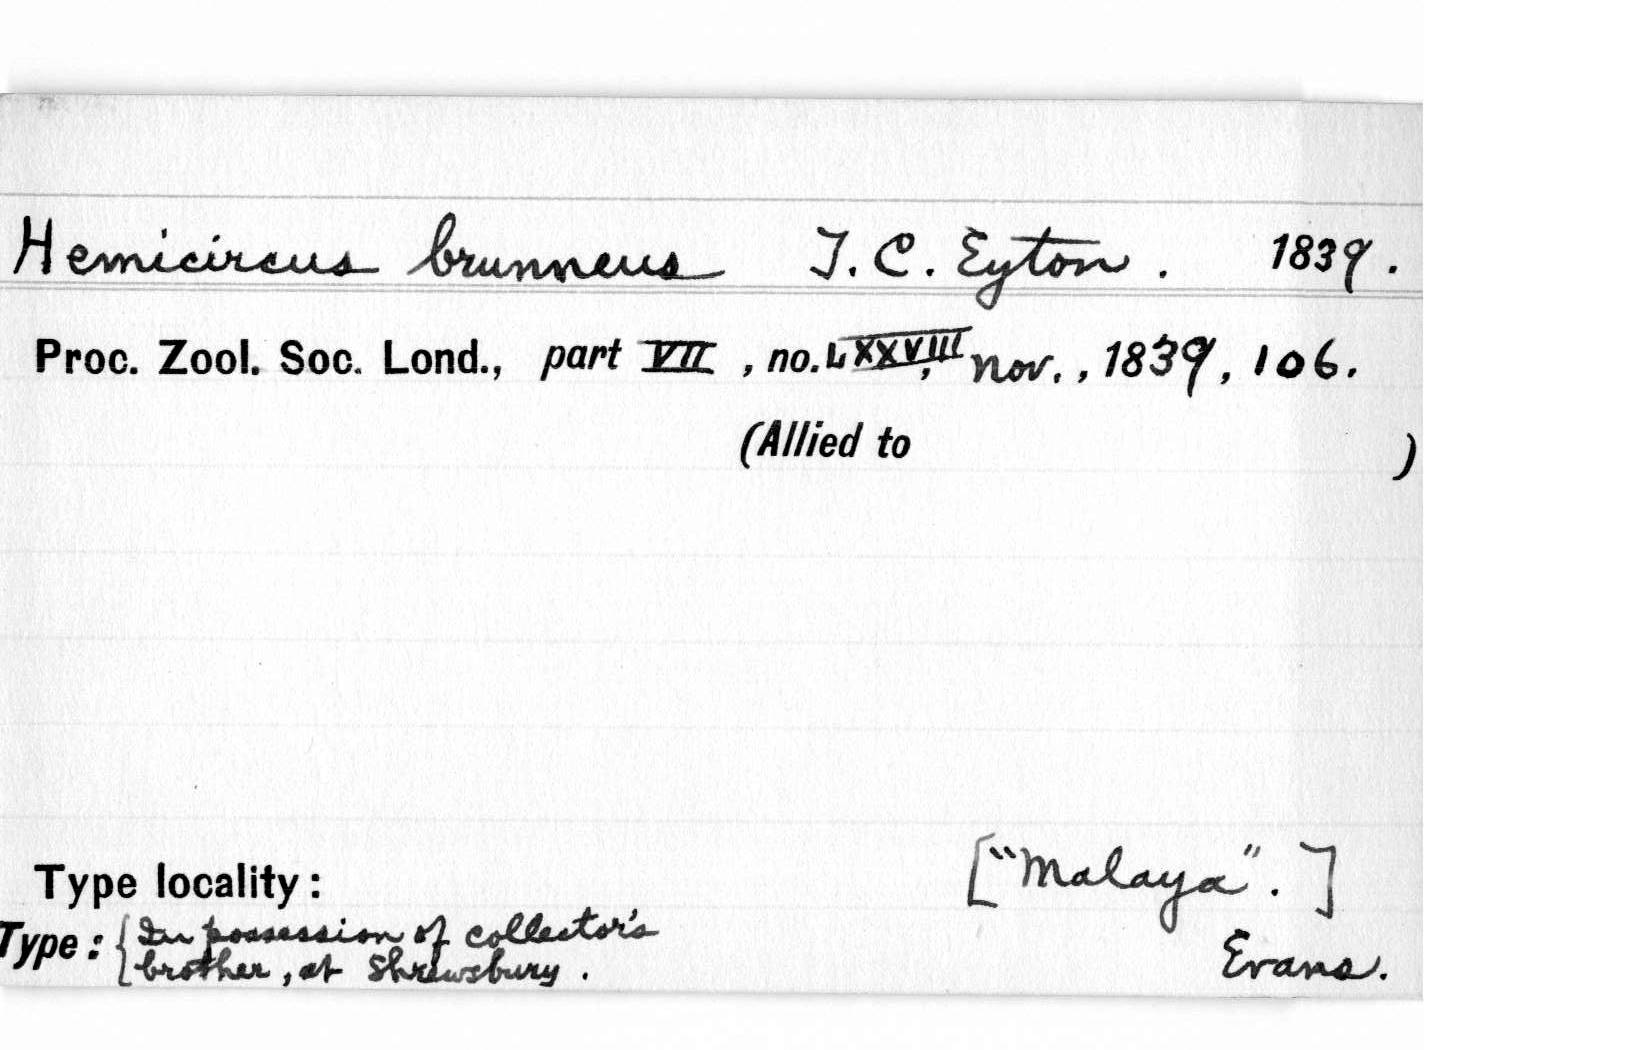 Hemicircus brunneus T. C. Eyton. 1839.
Proc. Zool. Soc. Lond., part VII, no. LXXVIII, Nov., 1839, 106.
(Allied to )
Type locality: ["Malaya".]
Type: {In possession of collector's
brother, at Shrewsbury. Evans.